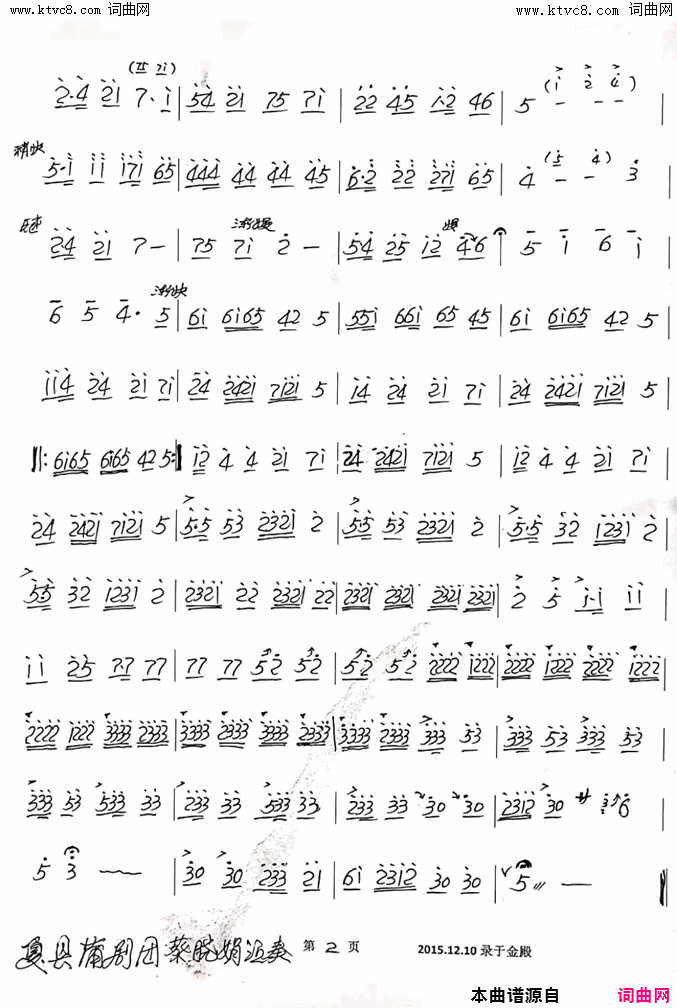 www.ktvc8.com 词曲网 www.ktvc8.com 词曲网
2·4 21 7·1 | 54 21 75 71 | 22 45 1·2 46 | 5 — — |
稍快 5·1 11 171 65 | 444 44 44 45 | 6·2 22 271 65 | 4 — — 3
24 21 7 — | 75 71 渐慢 2 — | 54 25 12 慢 46 | 5 1 6 1
6 5 4· 渐快 5 | 61 6165 42 5 | 551 661 65 45 | 61 6165 42 5 |
114 24 21 71 | 24 2421 7121 5 | 14 24 21 71 | 24 2421 7121 5 |
‖: 6165 6165 42 5 :‖ 12 4 4 21 71 | 24 2421 7121 5 | 12 4 4 21 71 |
24 2421 7121 5 | 5·5 53 2321 2 | 5·5 53 2321 2 | 5·5 32 1231 2 |
5·5 32 1231 2 | 2321 22 2321 22 | 2321 2321 2321 2321 | 2 5 1·1 11 |
11 25 77 77 | 77 77 52 52 | 52 52 2222 1222 | 2222 1222 2222 1222 |
2222 1222 3333 2333 | 3333 2333 3333 2333 | 3333 2333 333 53 | 333 53 333 53 |
333 53 533 33 | 233 33 533 33 | 233 33 30 30 | 2312 30 3 6 |
5 3 | 30 30 233 21 | 61 2312 30 30 | 5 — ‖
夏县蒲剧团蔡晓娟演奏 第 2 页 2015.12.10 录于金殿
本曲谱源自 词曲网